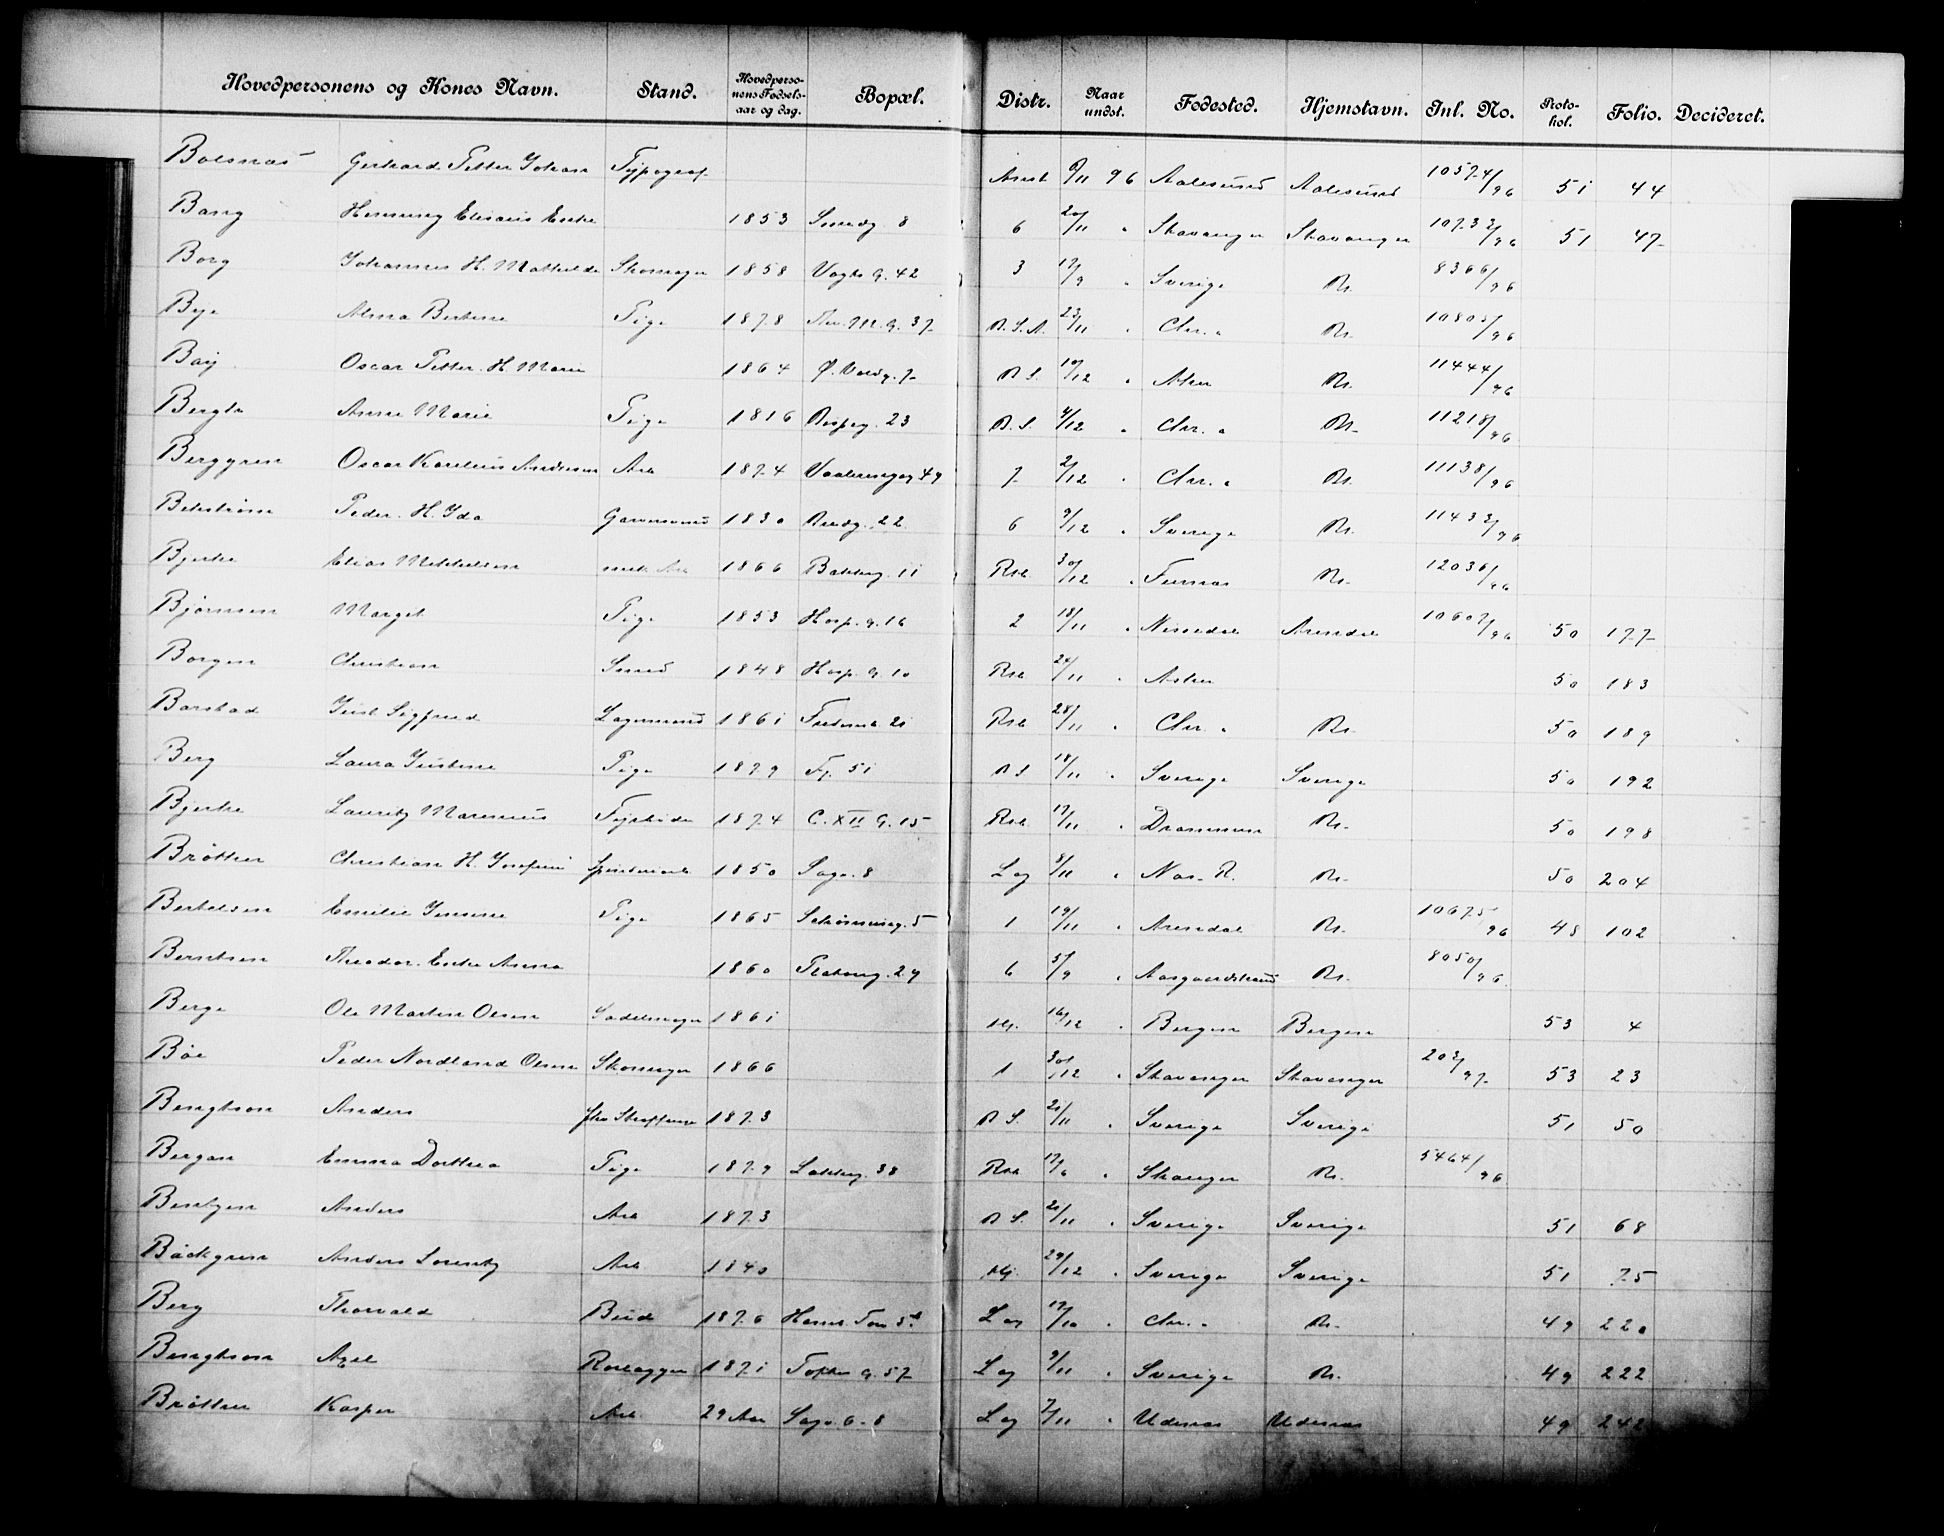 Hovedpersonens og Kones Navn. Stand. Hovedperso-nens Fødsels-aar og dag. Bopæl. Distr. Naar undst. Fødested. Hjemstavn. Inl. No. Proto-kol. Folio. Decideret.
Gerhard Petter Johan Typograf 9/11 96 Aalesund Aalesund 10574/96 51 44
Bang Henning Elisæus Enke 1853 Smedg. 8 6 20/11 " Stavanger Stavanger 10732/96 51 47
Borg Johannes H. Mathilde Skomager 1858 Vogts G. 42 3 17/9 " Sverige Kr. 8366/96
Bye Alma Bertine Pige 1878 37 R.S.A. 23/11 " Chr. " Kr. 10805/96
Bay Oscar Petter. H. Marie 1864 Ø. Voldg. 7 R S. 10/12 " Aker Kr. 11444/96
Anne Marie Pige 1816 23 R. S. 4/12 " Chr. " Kr. 11218/96
Berggren Oscar Karelius Andersen Arb 1874 Vaalerengag 49 7 2/12 " Chr. " Kr. 11138/96
Peder. H. Ida 1830 22 6 9/12 " Sverige Kr. 11432/96
Bjerke Elias Mikkelsen mek Arb 1866 Bakkeg. 11 Rsk 30/12 " Furnes Kr. 12036/96
Bjørnsen Marget Pige 1853 Hosp. G. 16 2 18/11 " Nissedal Arendal 10607/96 50 177
Borgen Christian Smed 1848 Hosp. G. 10 Rsk 24/11 " Asker 50 183
Barstad Just Sigfred Lagermand 1861 21 Rsk 28/11 " Chr. " Kr. 50 189
Berg Laura Justine Pige 1879 Fj. 51 R S 18/11 " Sverige Sverige 50 192
Bjerke Lauritz Marenius 1874 C. XII G. 15 Rsk 17/11 " Drammen Kr. 50 198
Brøtten Christian H. Josefine 1850 Sagv. 8 Log 8/11 " Nas. R. Kr. 50 204
Bertelsen Emilie Jensine Pige 1865 Schønningg. 5 1 19/11 " Arendal Kr. 10675/96 48 102
Berntsen Theodor. Enke Anna 1860 29 6 5/9 " Aasgaardstrand Kr. 8050/96
Berge Ole Martin Olsen Sadelmager 1861 16/12 " Bergen Bergen 53 4
Bøe Peder Nordland Olsen Skomager 1866 1 30/12 " Stavanger Stavanger 202/97 53 23
Bengtson Anders 1873 R S. 21/11 " Sverige Sverige 51 50
Bergan Emma Dorthea Pige 1879 Lakkeg. 38 Rsk 17/6 " Skanger Kr. 5464/96
Bentzen Anders Arb 1873 R S. 21/11 " Sverige Sverige 51 68
Bäckgren Anders Lorentz Arb. 1840 29/12 " Sverige Sverige 51 75
Berg Thorvald Bud 1876 Log 17/10 " Chr. " Kr. 49 220
Bengtson Axel Rørlægger 1871 Toftes G. 57 Log 9/11 " Sverige Kr. 49 222
Brøtten Kasper Arb. 29 Aar Sagv. 6-8 Log 7/11 " Udenæs Udenæs 49 242